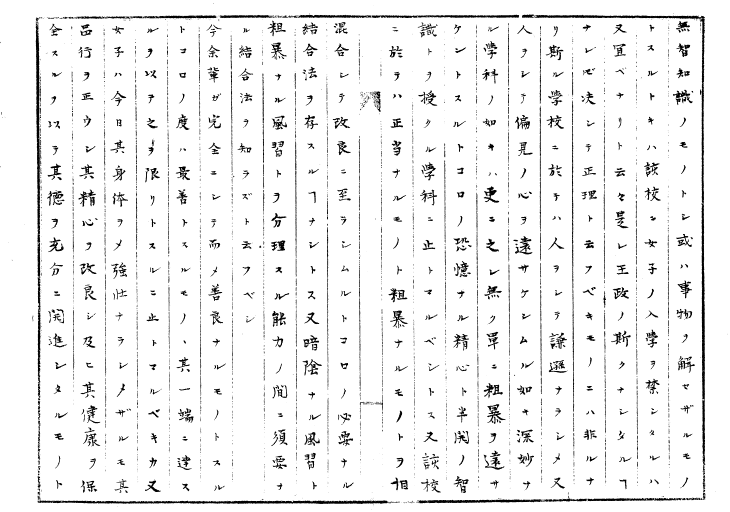 無智知識ノモノトシ或ハ事物ヲ解セザルモノ
トスルトキハ該校ニ女子ノ入学ヲ禁シタルハ
又宜ベナリト云々是レ王政ノ斯クナシタルヿ
ナレ𪜈决シテ正理ト云フベキモノニハ非ルナ
リ斯ル学校ニ於テハ人ヲシテ謙遜ナラシメ又
人ヲシテ偏見ノ心ヲ遠サケシムル如キ深妙ナ
ル学科ノ如キハ更ニ之レ無ク単ニ粗暴ヲ遠サ
ケントスルトコロノ恐憶ナル精心ト半開ノ智
識トヲ授クル学科ニ止トマルベントス又該校
ニ於テハ正当ナルモノト粗暴ナルモノトヲ相
混合シテ改良ニ至ラシムルトコロノ必要ナル
結合法ヲ存スルヿナントス又暗陰ナル風習ト
粗暴ナル風習トヲ分理スル能力ノ間ニ須要ナ
ル結合法ヲ知ラズト云フベシ
今余輩ガ完全ニシテ而メ善良ナルモノトスル
トコロノ度ハ最善トスルモノヽ其一端ニ達ス
ルヲ以テ之ヲ限リトスルニ止トマルベキカ又
女子ハ今日其身体ヲメ強壮ナラシメザルモ其
品行ヲ正ウシ其精心ヲ改良シ及ヒ其健康ヲ保
全スルヲ以テ其徳ヲ充分ニ開進シタルモノト